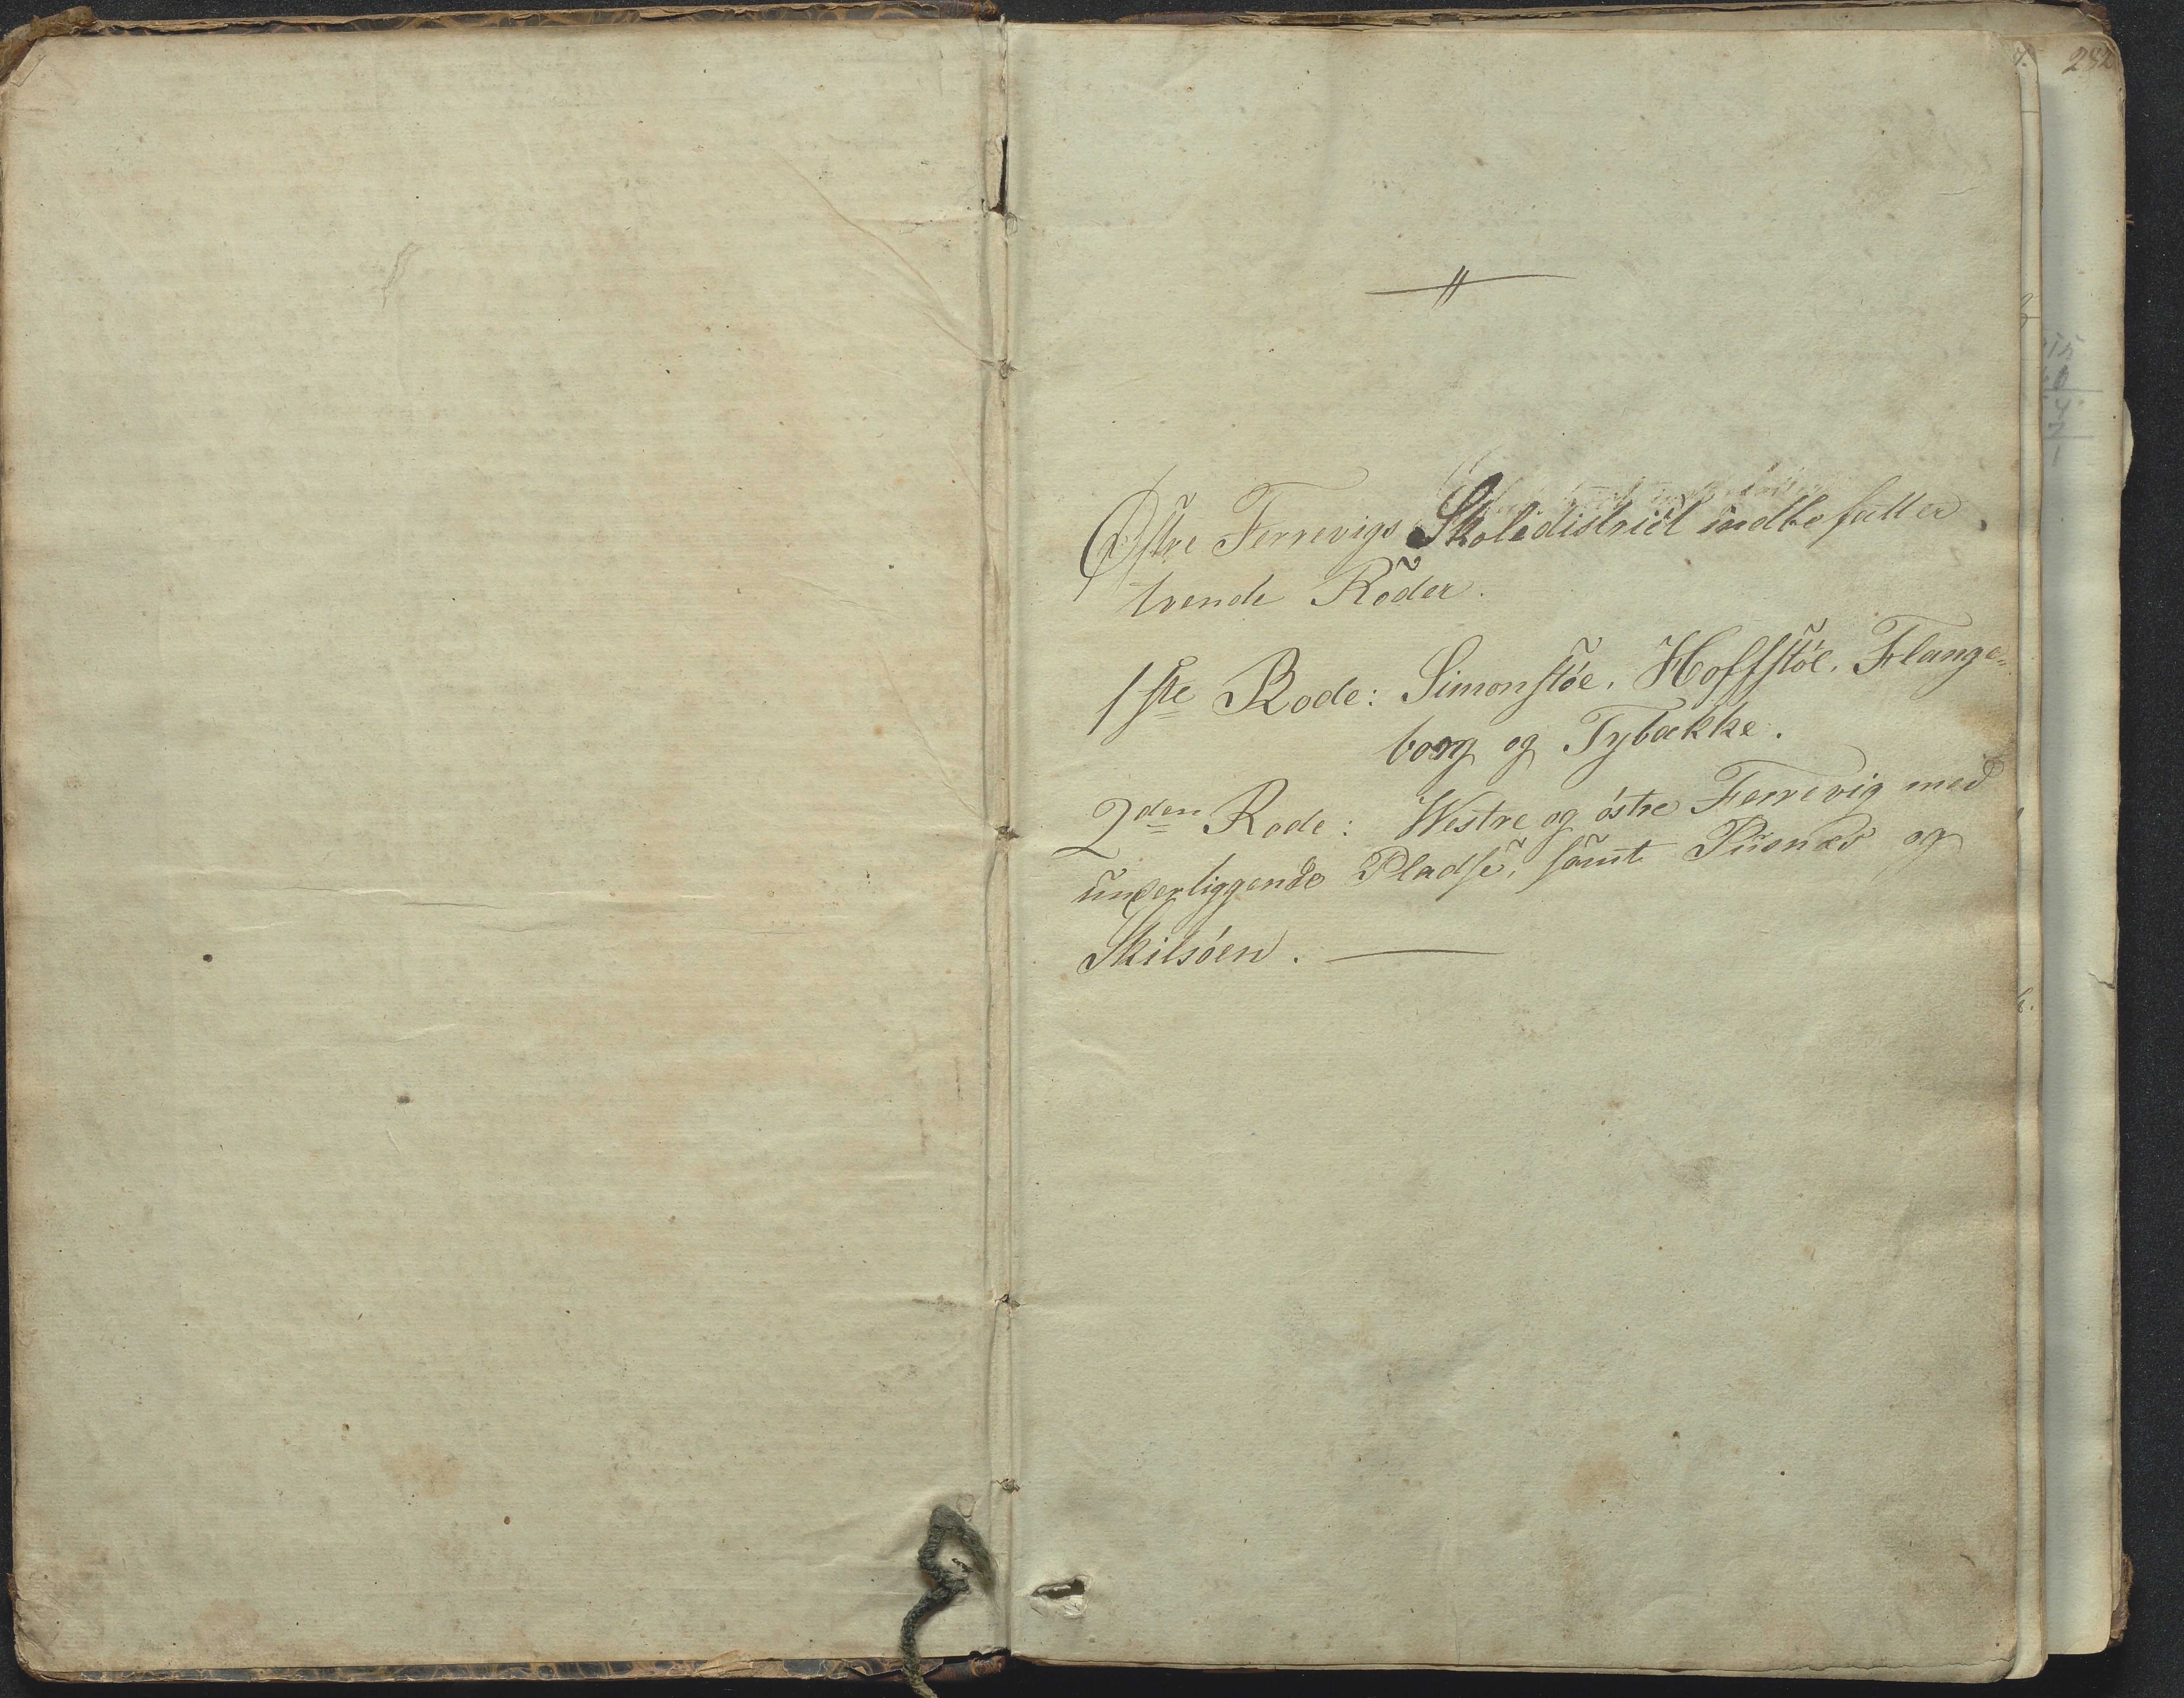 282
Østre Ferrevigs Skoledistrict indbefatter
tvende Roder.
1ste Rode: Simonstöe, Hoffstöe, Flange-
borg og Tybække.
2den Rode: Westre og östre Ferrevig med
underliggende Pladse, samt Pusnæs og
Skilsöen.